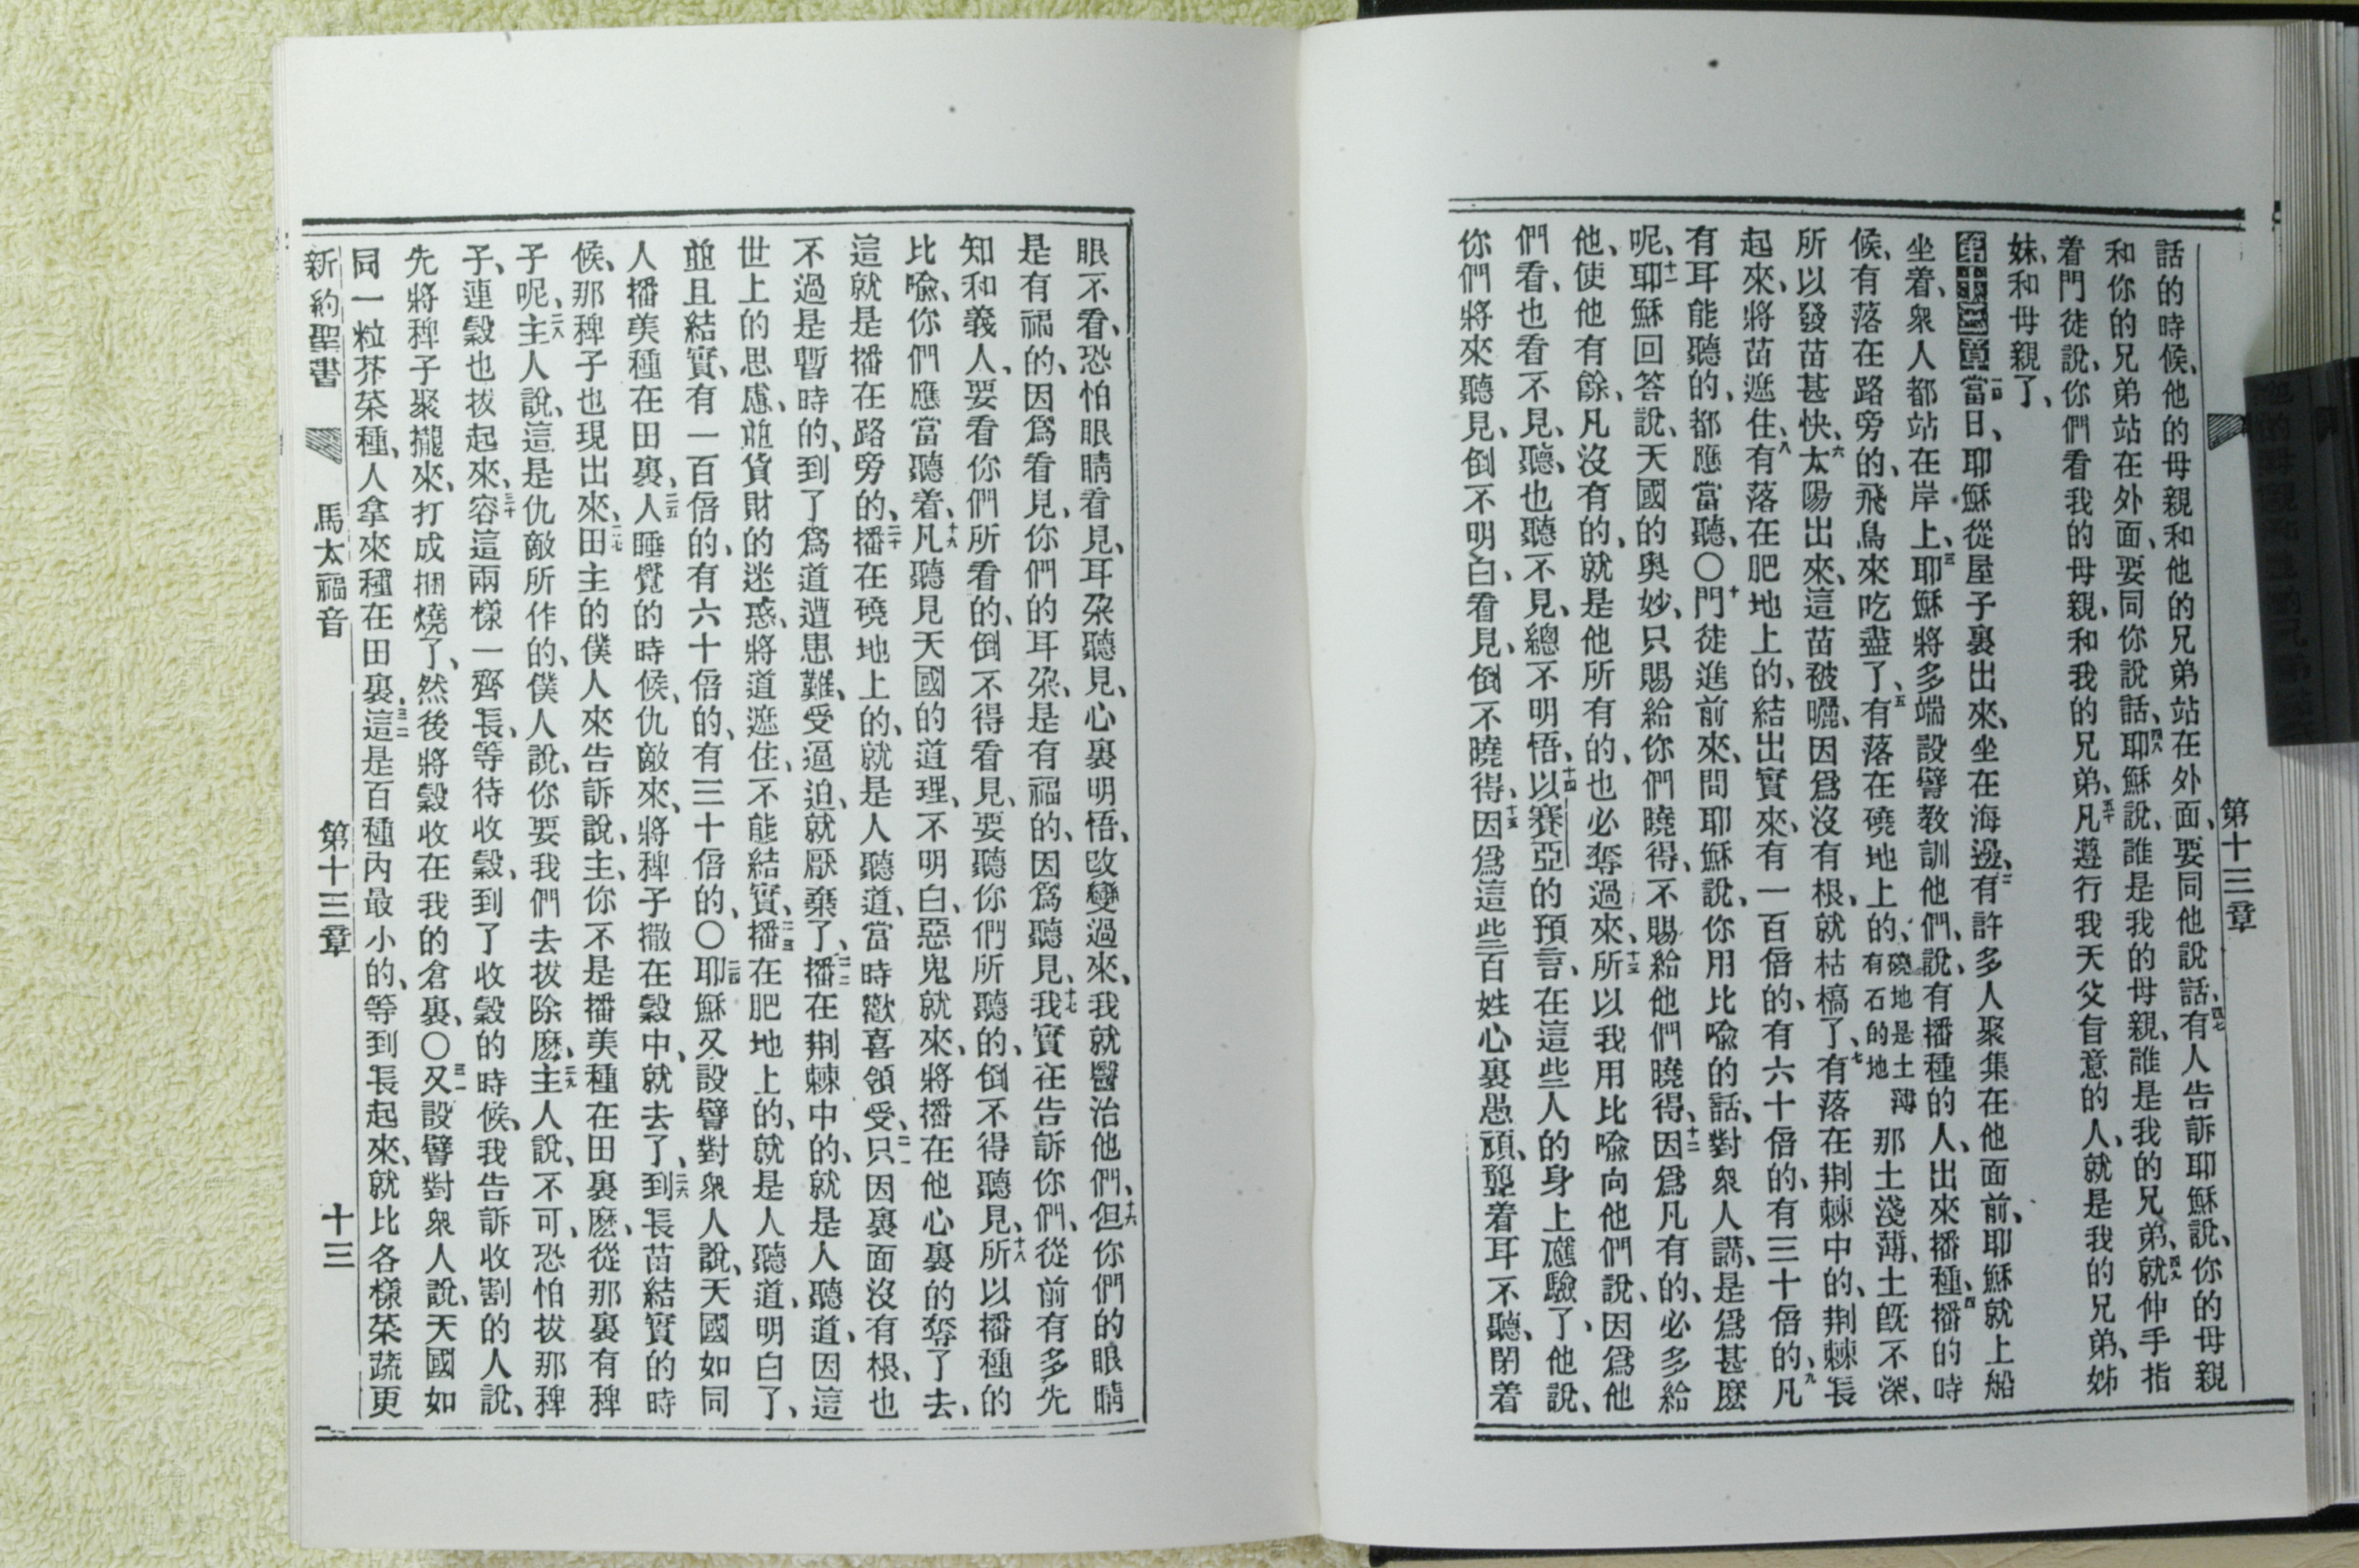 第十三章
話的時候、他的母親和他的兄弟站在外面、要同他說話、四七有人告訴耶穌說、你的母親
和你的兄弟站在外面、要同你說話、四八耶穌說、誰是我的母親、誰是我的兄弟、四九就伸手指
着門徒說、你們看我的母親、和我的兄弟、五十凡遵行我天父旨意的人、就是我的兄弟、姊
妹、和母親了、
第十三章 一當日、耶穌從屋子裏出來、坐在海邊、二有許多人聚集在他面前、耶穌就上船
坐着、衆人都站在岸上、三耶穌將多端設譬教訓他們、說、有播種的人、出來播種、四播的時
候、有落在路旁的、飛鳥來吃盡了、五有落在磽地上的、磽地是土薄有石的地那土淺薄、土既不深、
所以發苗甚快、六太陽出來、這苗被曬、因爲沒有根、就枯槁了、七有落在荆棘中的、荆棘長
起來、將苗遮住、八有落在肥地上的、結出實來、有一百倍的、有六十倍的、有三十倍的、九凡
有耳能聽的、都應當聽、〇十門徒進前來、問耶穌說、你用比喩的話、對衆人講、是爲甚麽
呢、十一耶穌回答說、天國的奧妙、只賜給你們曉得、不賜給他們曉得、十二因爲凡有的、必多給
他、使他有餘、凡沒有的、就是他所有的、也必奪過來、十三所以我用比喩向他們說、因爲他
們看、也看不見、聽、也聽不見、總不明悟、十四以賽亞的預言、在這些人的身上應驗了、他說、
你們將來聽見、倒不明白、看見、倒不曉得、十五因爲這些百姓心裏愚頑、聾着耳不聽、閉着
眼不看、恐怕眼睛看見、耳朶聽見、心裏明悟、改變過來、我就醫治他們、十六但你們的眼睛
是有福的、因爲看見、你們的耳朶、是有福的、因爲聽見、十七我實在告訴你們、從前有多先
知和義人、要看你們所看的、倒不得看見、要聽你們所聽的、倒不得聽見、十八所以播種的
比喩、你們應當聽着、十九凡聽見天國的道理、不明白、惡鬼就來、將播在他心裏的奪了去、
這就是播在路旁的、二十播在磽地上的、就是人聽道、當時歡喜領受、二一只因裏面沒有根、也
不過是暫時的、到了爲道遭患難、受逼迫、就厭棄了、二二播在荆棘中的、就是人聽道、因這
世上的思慮、並貨財的迷惑、將道遮住、不能結實、二三播在肥地上的、就是人聽道、明白了、
並且結實、有一百倍的、有六十倍的、有三十倍的、〇二四耶穌又設譬對衆人說、天國如同
人播美種在田裏、二五人睡覺的時候、仇敵來、將稗子撒在穀中、就去了、二六到長苗結實的時
候、那稗子也現出來、二七田主的僕人來告訴說、主、你不是播美種在田裏麽、從那裏有稗
子呢、二八主人說、這是仇敵所作的、僕人說、你要我們去拔除麽、二九主人說、不可、恐怕拔那稗
子、連穀也拔起來、三十容這兩樣一齊長、等待收穀、到了收穀的時候、我告訴收割的人說、
先將稗子聚攏來、打成捆燒了、然後將穀收在我的倉裏、〇三一又設譬對衆人說、天國如
同一粒芥菜種、人拿來種在田裏、三二這是百種內最小的、等到長起來、就比各樣菜蔬更
新約聖書 馬太福音 第十三章 十三